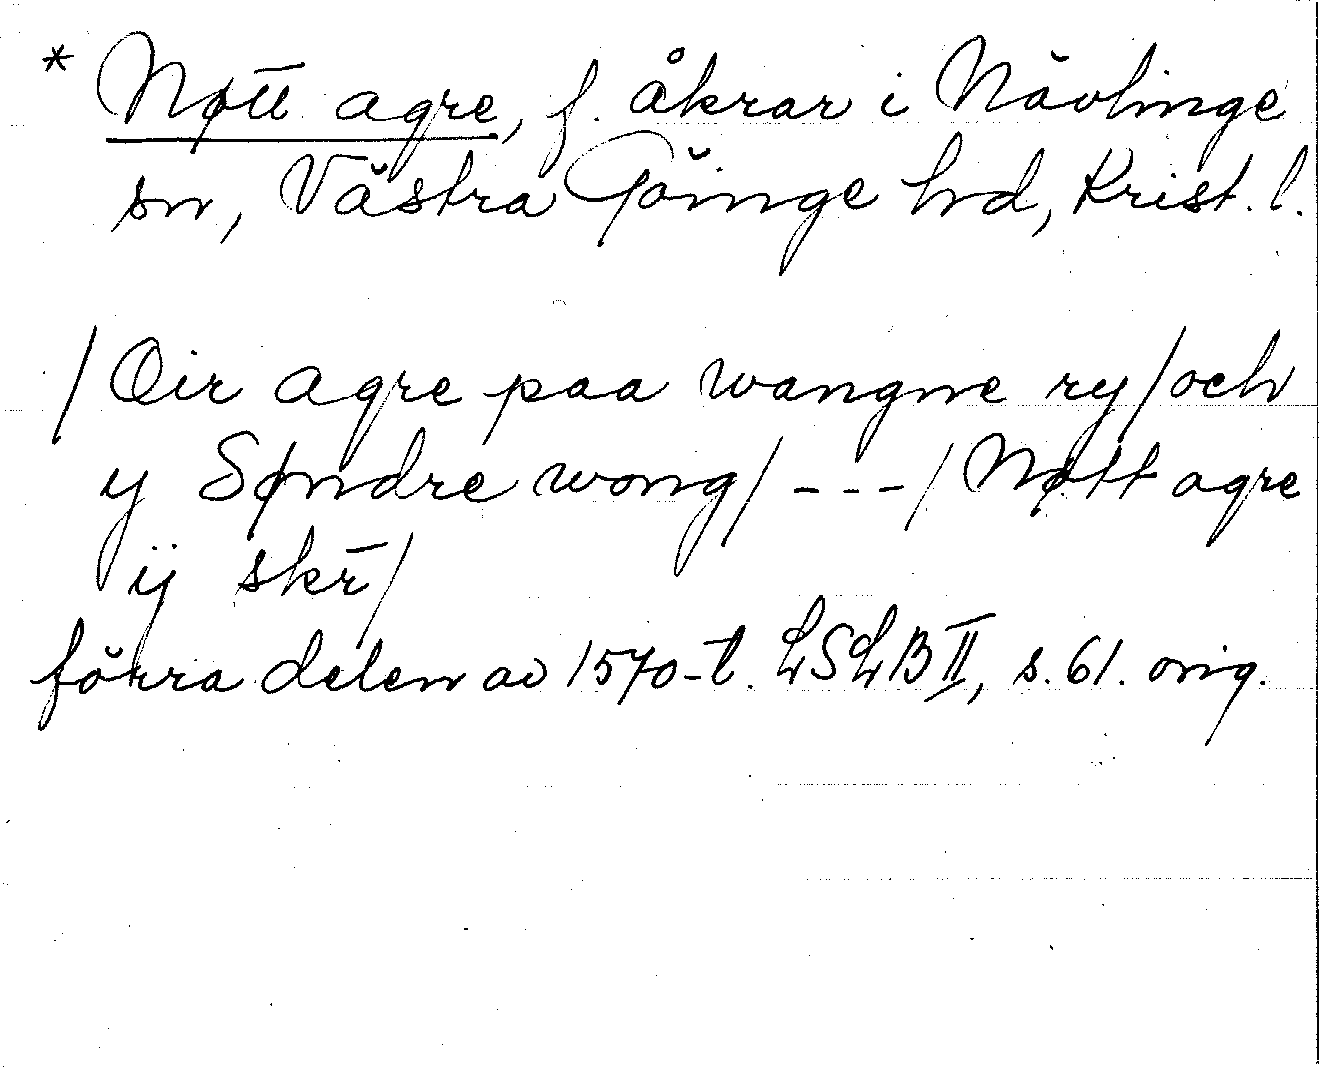 * Nøtt agre, f. åkrar i Nävlinge
sn, Västra Göinge hd, Krist. l.
/ Oir agre paa wangne ry / och
y Søndre wong / - - - / Nøtt agre
ij skr̄ /
förra delen av 1570-t. LSLB II, s. 61. orig.